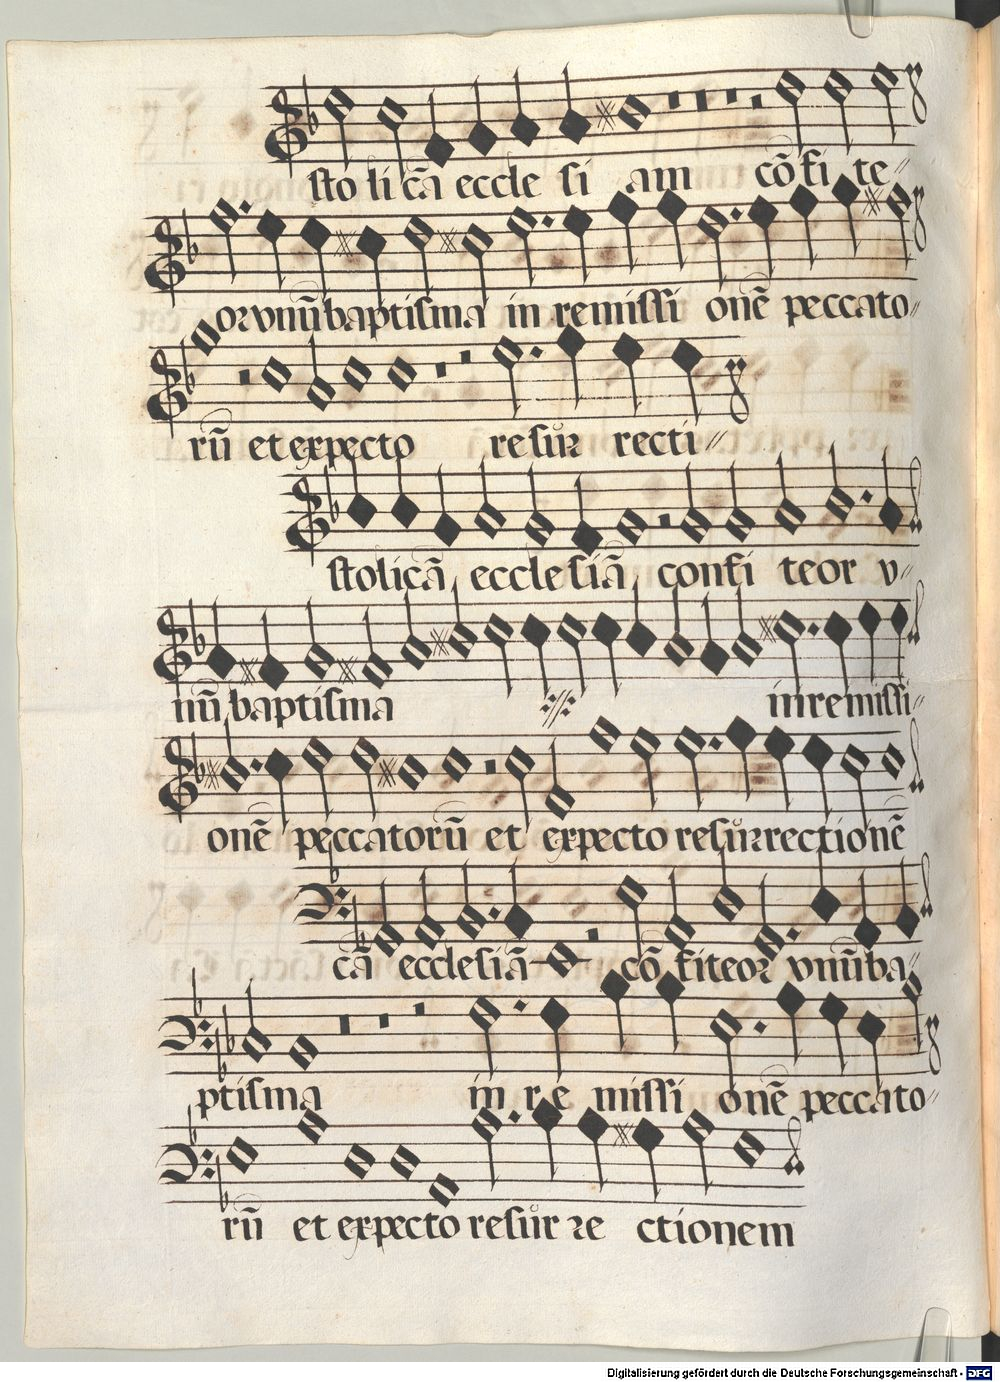 sto li cā eccle si am cō fi te〃
or vnū baptisma in remissi onē peccato〃
rū et expecto resur recti〃
stolicā ecclesiā confi teor v〃
nū baptisma in remissi〃
onē peccatorū et expecto resurrectionē
cā ecclesiā cō fiteor vnū ba〃
ptisma in re missi onē peccato〃
rū et expecto resur re ctionem
Digitalisierung gefördert durch die Deutsche Forschungsgemeinschaft - DFG